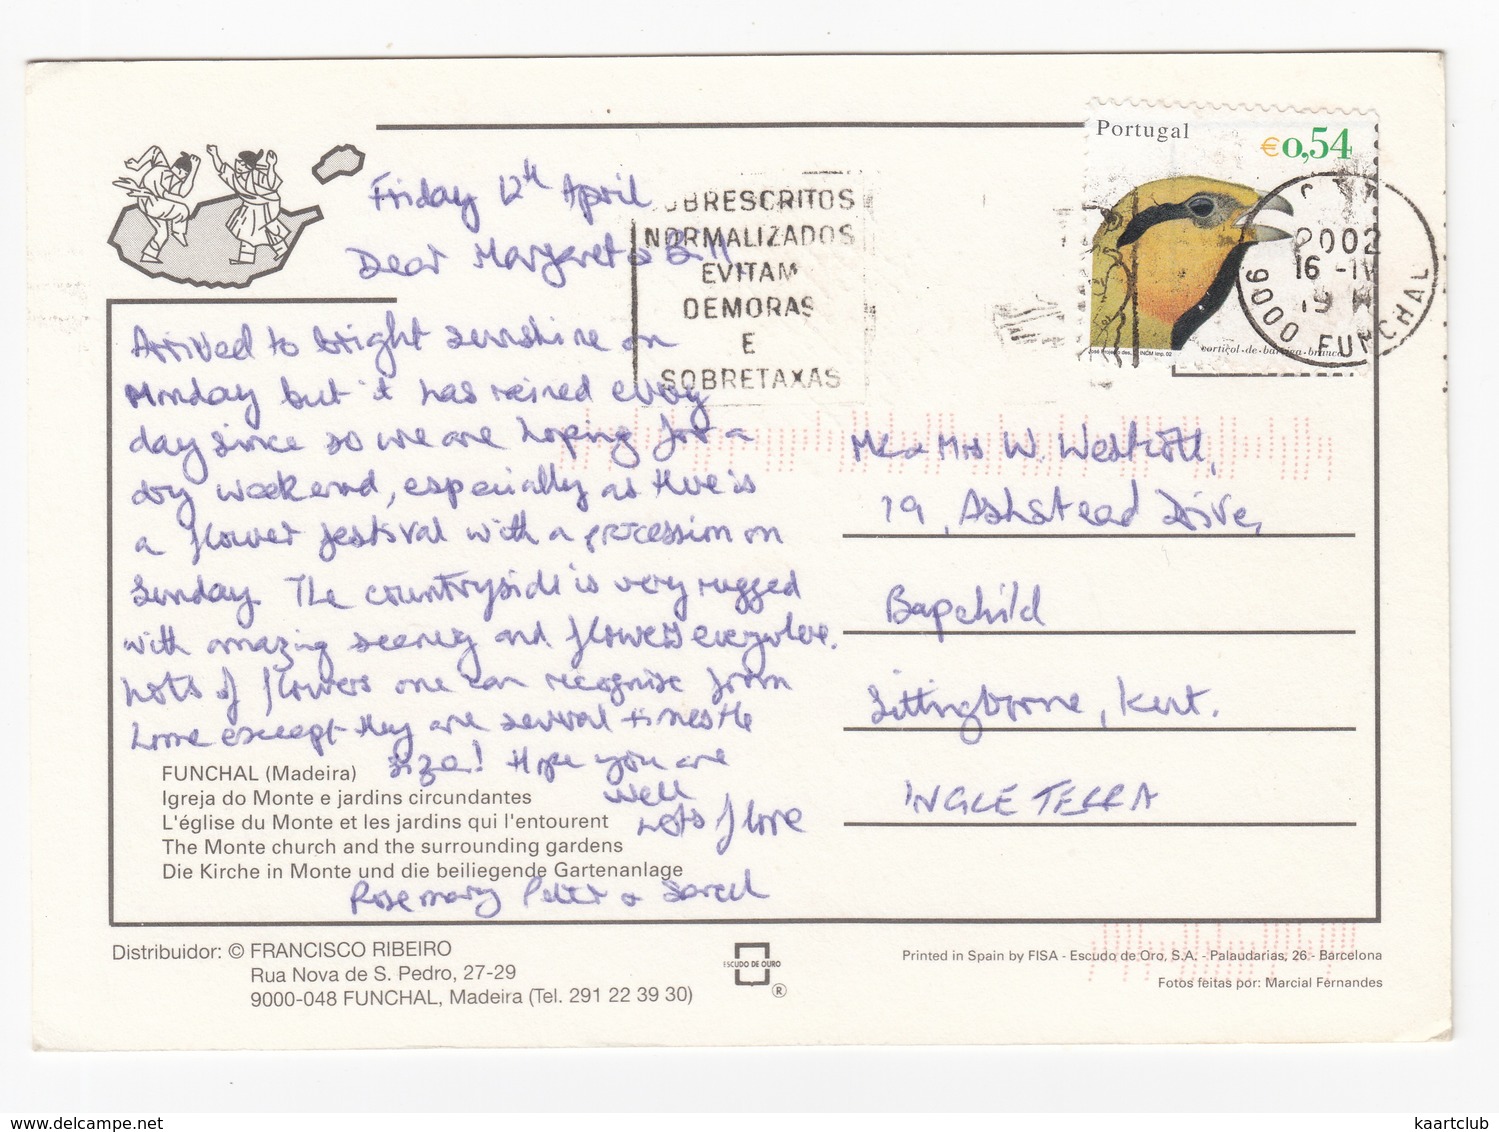 Portugal
€0,54
cortiçol-de-barriga-branca
CTT
2002
16 -IV
19 H
9000 FUNCHAL
SOBRESCRITOS
NORMALIZADOS
EVITAM
DEMORAS
E
SOBRETAXAS
Friday 12th April
Dear Margaret & Bill
Arrived to bright sunshine on
Monday but it has rained every
day since so we are hoping for a
dry weekend, especially as there is
a flower festival with a procession on
Sunday. The countryside is very rugged
with amazing scenery and flowers everywhere.
Lots of flowers one can recognise from
home except they are several times the
size! Hope you are
well
Lots of love
Rosemary Peter & Sarah
Mr & Mrs W. Westcott,
19, Ashstead Drive,
Bapchild
Sittingborne, Kent.
INGLETERRA
FUNCHAL (Madeira)
Igreja do Monte e jardins circundantes
L'église du Monte et les jardins qui l'entourent
The Monte church and the surrounding gardens
Die Kirche in Monte und die beiliegende Gartenanlage
Distribuidor: © FRANCISCO RIBEIRO
Rua Nova de S. Pedro, 27-29
9000-048 FUNCHAL, Madeira (Tel. 291 22 39 30)
ESCUDO DE ORO
®
Printed in Spain by FISA - Escudo de Oro, S.A. - Palaudarias, 26 - Barcelona
Fotos feitas por: Marcial Fernandes
www.delcampe.net
kaartclub